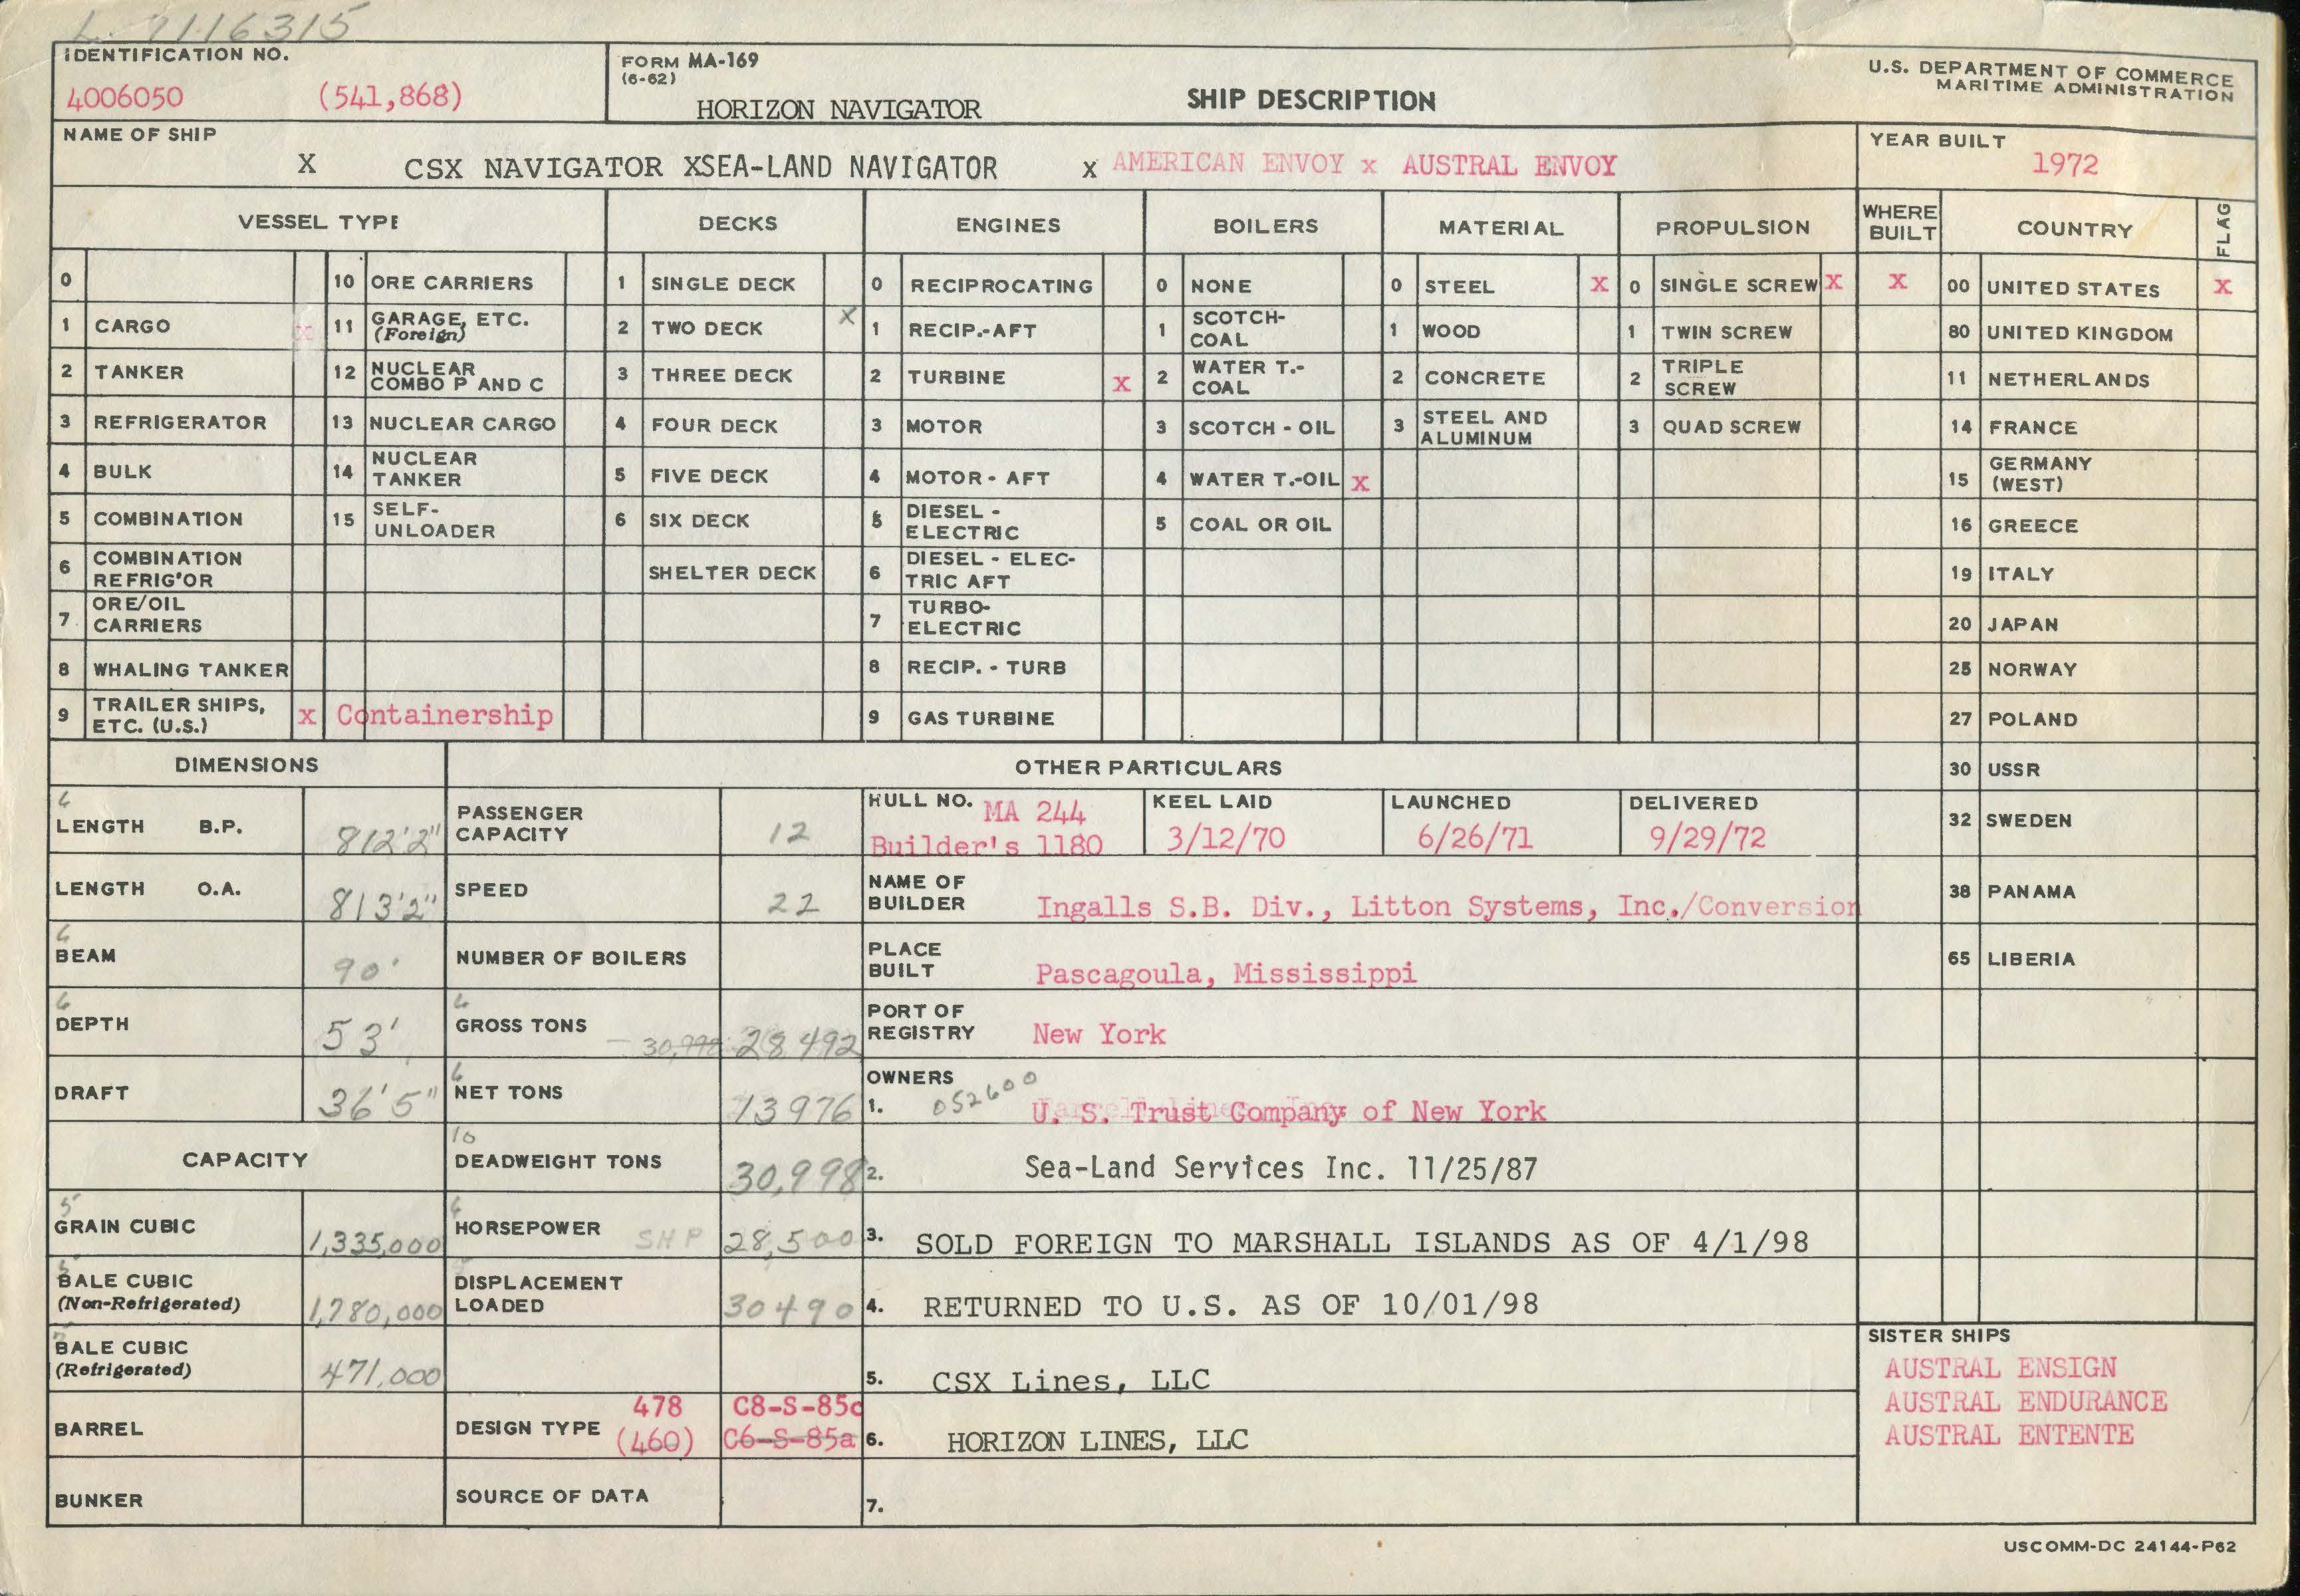 L. 7116315
IDENTIFICATION NO.
4006050 (541,868)
FORM MA-169
(6-62)
HORIZON NAVIGATOR
SHIP DESCRIPTION
U.S. DEPARTMENT OF COMMERCE
MARITIME ADMINISTRATION
NAME OF SHIP
X CSX NAVIGATOR XSEA-LAND NAVIGATOR x AMERICAN ENVOY x AUSTRAL ENVOY
YEAR BUILT
1972
VESSEL TYPE DECKS ENGINES BOILERS MATERIAL PROPULSION WHERE BUILT COUNTRY FLAG
0 10 ORE CARRIERS 1 SINGLE DECK 0 RECIPROCATING 0 NONE 0 STEEL x 0 SINGLE SCREW x x 00 UNITED STATES x
1 CARGO x 11 GARAGE, ETC. (Foreign) 2 TWO DECK x 1 RECIP.-AFT 1 SCOTCH-COAL 1 WOOD 1 TWIN SCREW 80 UNITED KINGDOM
2 TANKER 12 NUCLEAR COMBO P AND C 3 THREE DECK 2 TURBINE x 2 WATER T.-COAL 2 CONCRETE 2 TRIPLE SCREW 11 NETHERLANDS
3 REFRIGERATOR 13 NUCLEAR CARGO 4 FOUR DECK 3 MOTOR 3 SCOTCH - OIL 3 STEEL AND ALUMINUM 3 QUAD SCREW 14 FRANCE
4 BULK 14 NUCLEAR TANKER 5 FIVE DECK 4 MOTOR - AFT 4 WATER T.-OIL x 15 GERMANY (WEST)
5 COMBINATION 15 SELF-UNLOADER 6 SIX DECK 5 DIESEL - ELECTRIC 5 COAL OR OIL 16 GREECE
6 COMBINATION REFRIG'OR SHELTER DECK 6 DIESEL - ELECTRIC AFT 19 ITALY
7 ORE/OIL CARRIERS 7 TURBO-ELECTRIC 20 JAPAN
8 WHALING TANKER 8 RECIP. - TURB 25 NORWAY
9 TRAILER SHIPS, ETC. (U.S.) x Containership 9 GAS TURBINE 27 POLAND
DIMENSIONS OTHER PARTICULARS 30 USSR
6 LENGTH B.P. 812'2" PASSENGER CAPACITY 12 HULL NO. MA 244 Builder's 1180 KEEL LAID 3/12/70 LAUNCHED 6/26/71 DELIVERED 9/29/72 32 SWEDEN
LENGTH O.A. 813'2" SPEED 22 NAME OF BUILDER Ingalls S.B. Div., Litton Systems, Inc./Conversion 38 PANAMA
6 BEAM 90' NUMBER OF BOILERS PLACE BUILT Pascagoula, Mississippi 65 LIBERIA
6 DEPTH 53' 6 GROSS TONS 30,998 28492 PORT OF REGISTRY New York
DRAFT 36'5" 6 NET TONS 13976 OWNERS 1. 052600 U. S. Trust Company of New York
CAPACITY 10 DEADWEIGHT TONS 30,998 2. Sea-Land Services Inc. 11/25/87
5 GRAIN CUBIC 1,335,000 6 HORSEPOWER SHP 28,500 3. SOLD FOREIGN TO MARSHALL ISLANDS AS OF 4/1/98
5 BALE CUBIC (Non-Refrigerated) 1,280,000 DISPLACEMENT LOADED 30490 4. RETURNED TO U.S. AS OF 10/01/98
BALE CUBIC (Refrigerated) 471,000 5. CSX Lines, LLC
BARREL DESIGN TYPE 478 (460) C8-S-85c C6-S-85a 6. HORIZON LINES, LLC
BUNKER SOURCE OF DATA 7.
SISTER SHIPS
AUSTRAL ENSIGN
AUSTRAL ENDURANCE
AUSTRAL ENTENTE
USCOMM-DC 24144-P62